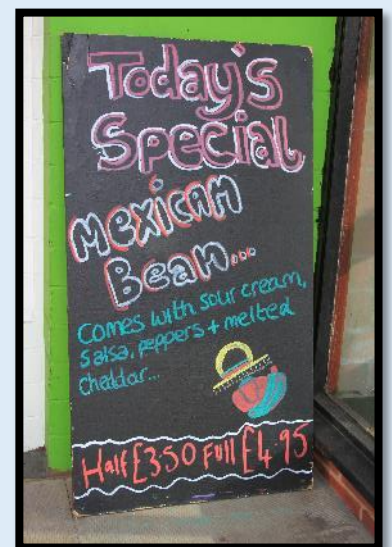 Today's
Special
Mexican
Bean...
Comes with sour cream,
Salsa, peppers + melted
Cheddar...
Half £3.50 Full £4.95